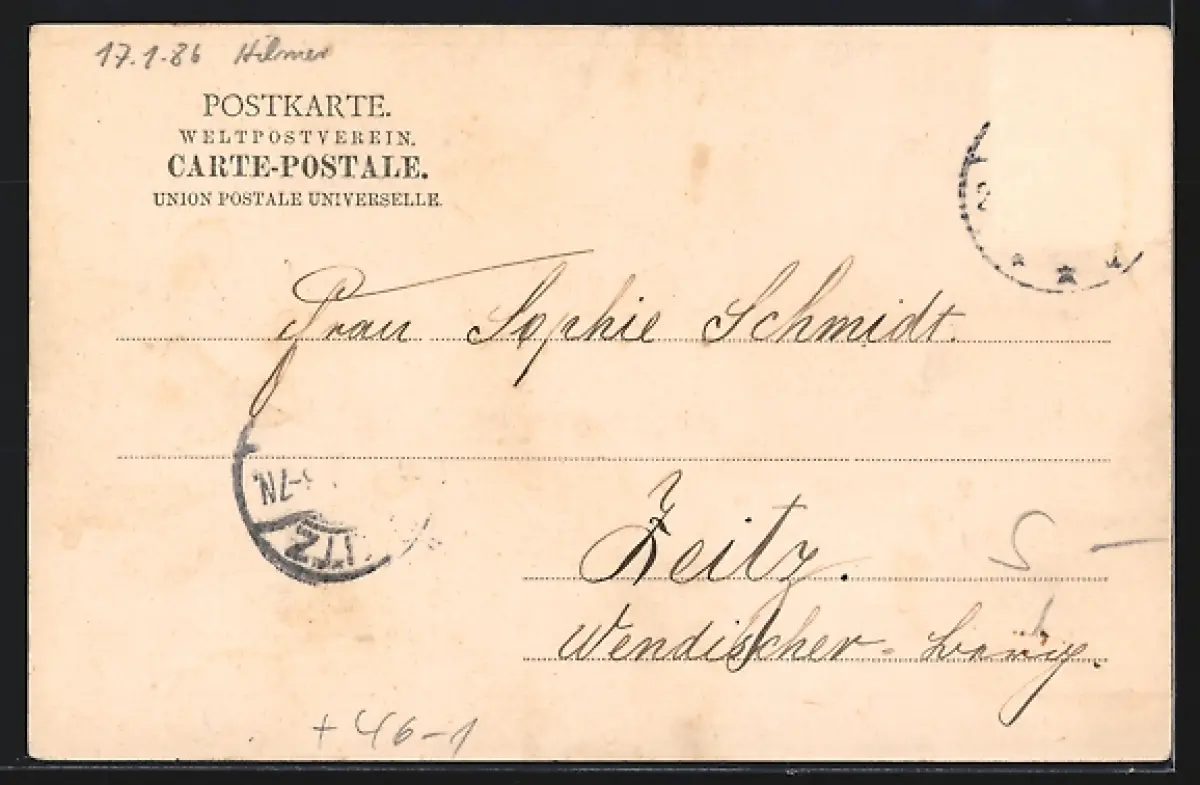 17.1.86 Hilmer
POSTKARTE.
WELTPOSTVEREIN.
CARTE-POSTALE.
UNION POSTALE UNIVERSELLE.
2
Frau Sophie Schmidt.
-7N.
ITZ
Zeitz.
S -
Wendischer-
+ 46-1